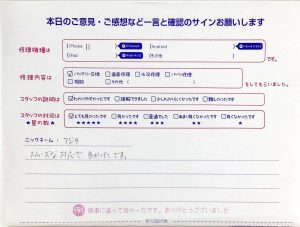 本日のご意見・ご感想など一言と確認のサインお願いします
修理機種は
iPhone
iPad
Android
その他
です。
修理内容は
バッテリー交換 画面修理 水没修理 パーツ修理
相談 その他
をしてもらいました。
スタッフの説明は
わかりやすかったです 理解できました 少しわかりにくかったです 難しかったです
スタッフの対応は
★星の数★
とても良かったです 良かったです 普通でした あまり良くなかったです 良くなかったです
★★★★★ ★★★★ ★★★ ★★ ★
ニックネーム：フジタ
スムーズな対応で 良かったです。
無事に直って良かったです。ありがとうございました